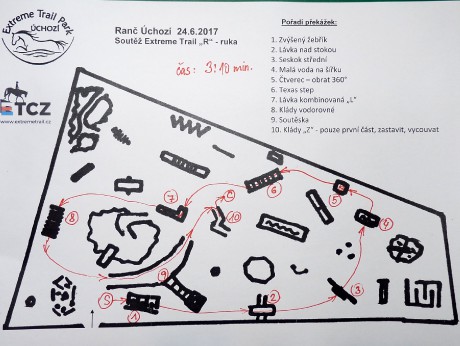 Extreme Trail Park
ÚCHOZI
Ranč Úchozi 24.6.2017
Soutěž Extreme Trail „R“ - ruka
čas: 3:10 min.
TCZ
www.extremetrail.cz
Pořadí překážek:
1. Zvýšený žebřík
2. Lávka nad stokou
3. Seskok střední
4. Malá voda na šířku
5. Čtverec – obrat 360°
6. Texas step
7. Lávka kombinovaná „L“
8. Klády vodorovné
9. Soutěska
10. Klády „Z“ - pouze první část, zastavit, vycouvat
6
5
C
7
4
8
10
9
S
2
3
1